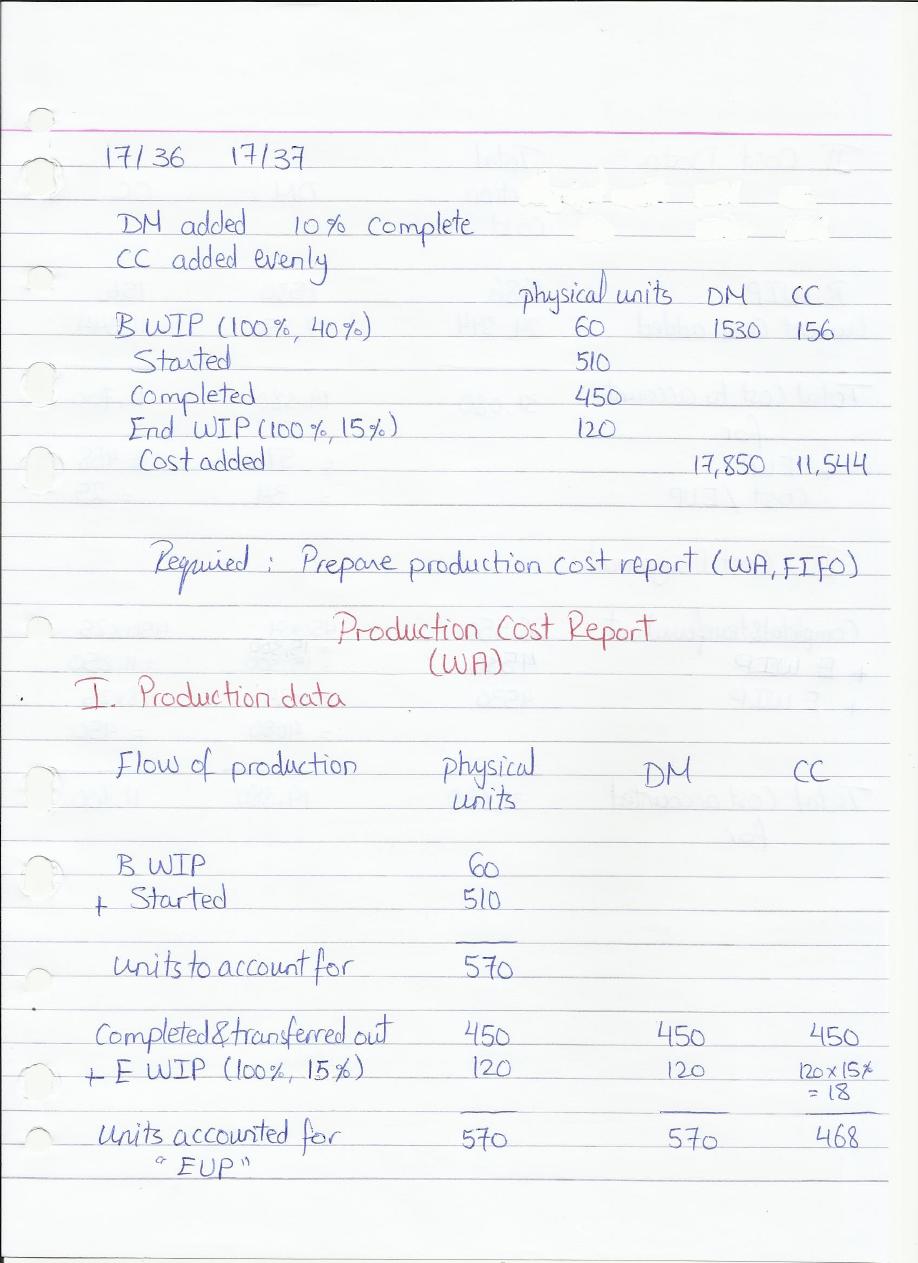 17/36 17/37
DM added 10% complete
CC added evenly
physical units DM CC
B WIP (100%, 40%) 60 1530 156
Started 510
Completed 450
End WIP (100%, 15%) 120
Cost added 17,850 11,544
Required : Prepare production cost report (WA, FIFO)
Production Cost Report
(WA)
I. Production data
Flow of production physical units DM CC
B WIP 60
+ Started 510
Units to account for 570
Completed & transferred out 450 450 450
+ E WIP (100%, 15%) 120 120 120 x 15%
= 18
Units accounted for 570 570 468
"EUP"